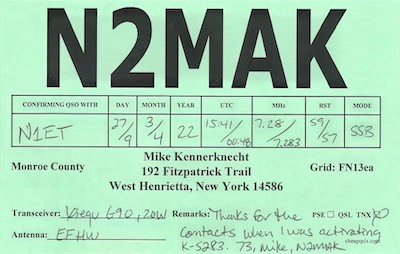 N2MAK
CONFIRMING QSO WITH DAY MONTH YEAR UTC MHz RST MODE
N1ET 27/9 3/4 22 15:41/00:48 7.28/7.283 59/57 SSB
Monroe County
Mike Kennerknecht
192 Fitzpatrick Trail
West Henrietta, New York 14586
Grid: FN13ea
Transceiver: Xiegu G90, 20W Remarks: Thanks for the PSE QSL TNX
Antenna: EFHW contacts when I was activating
K-5283. 73, Mike, N2MAK
cheapqsls.com